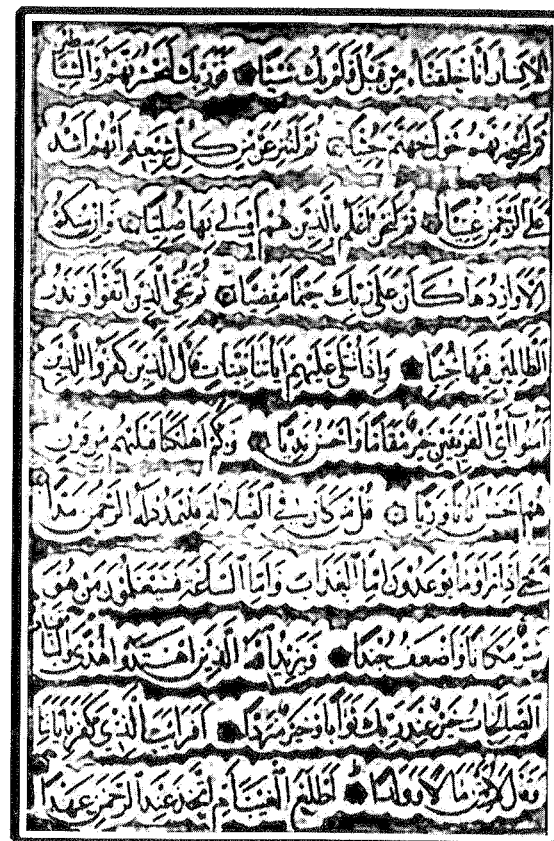 الانسان انا خلقناه من قبل ولم يك شيئا فوربك لنحشرنهم والشياطين
ثم لنحضرنهم حول جهنم جثيا ثم لننزعن من كل شيعة ايهم اشد
على الرحمن عتيا ثم لنحن اعلم بالذين هم اولى بها صليا وان منكم
الا واردها كان على ربك حتما مقضيا ثم ننجي الذين اتقوا ونذر
الظالمين فيها جثيا واذا تتلى عليهم اياتنا بينات قال الذين كفروا للذين
آمنوا اي الفريقين خير مقاما واحسن نديا وكم اهلكنا قبلهم من قرن
هم احسن اثاثا ورئيا قل من كان في الضلالة فليمدد له الرحمن مدا
حتى اذا راوا ما يوعدون اما العذاب واما الساعة فسيعلمون من هو
شر مكانا واضعف جندا ويزيد الله الذين اهتدوا هدى والباقيات
الصالحات خير عند ربك ثوابا وخير مردا افرايت الذي كفر باياتنا
وقال لاوتين مالا وولدا اطلع الغيب ام اتخذ عند الرحمن عهدا